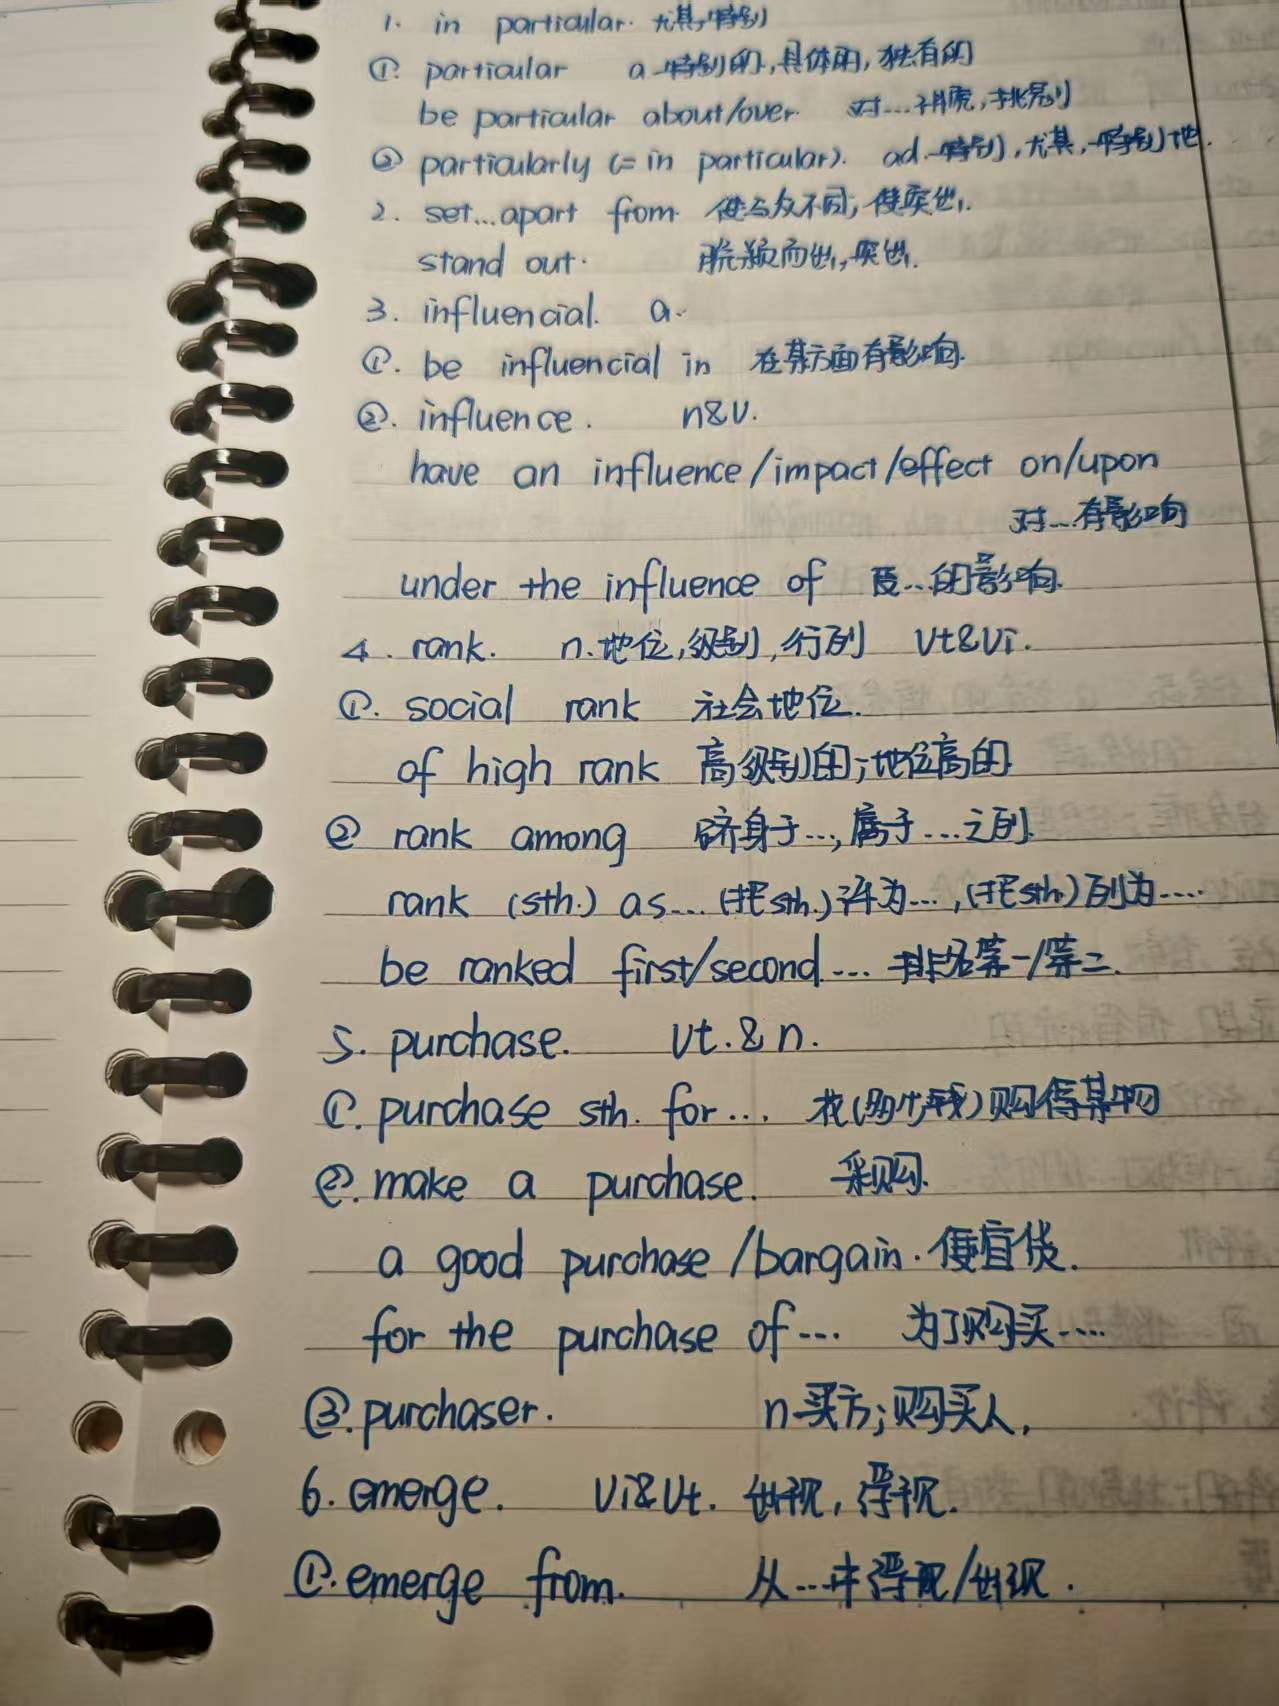 1. in particular. 尤其,特别
① particular a.特别的,具体的,独有的
be particular about/over. 对...讲究,挑剔
② particularly (= in particular). ad.特别,尤其,特别地.
2. set...apart from. 使与众不同;使突出.
stand out. 脱颖而出,突出.
3. influencial. a.
①. be influencial in 在某方面有影响.
②. influence. n&v.
have an influence/impact/effect on/upon
对...有影响
under the influence of 受...的影响.
4. rank. n.地位,级别,行列 vt&vi.
①. social rank 社会地位.
of high rank 高级别的;地位高的
② rank among 跻身于...,属于...之列.
rank (sth.) as... (把sth.)评为...,(把sth.)列为....
be ranked first/second... 排名第一/第二.
5. purchase. vt.&n.
①. purchase sth. for... 花(多少钱)购得某物
②. make a purchase. 采购.
a good purchase/bargain. 便宜货.
for the purchase of... 为了购买....
③. purchaser. n.买方;购买人.
6. emerge. vi&vt. 出现,浮现.
①. emerge from. 从...中浮现/出现.